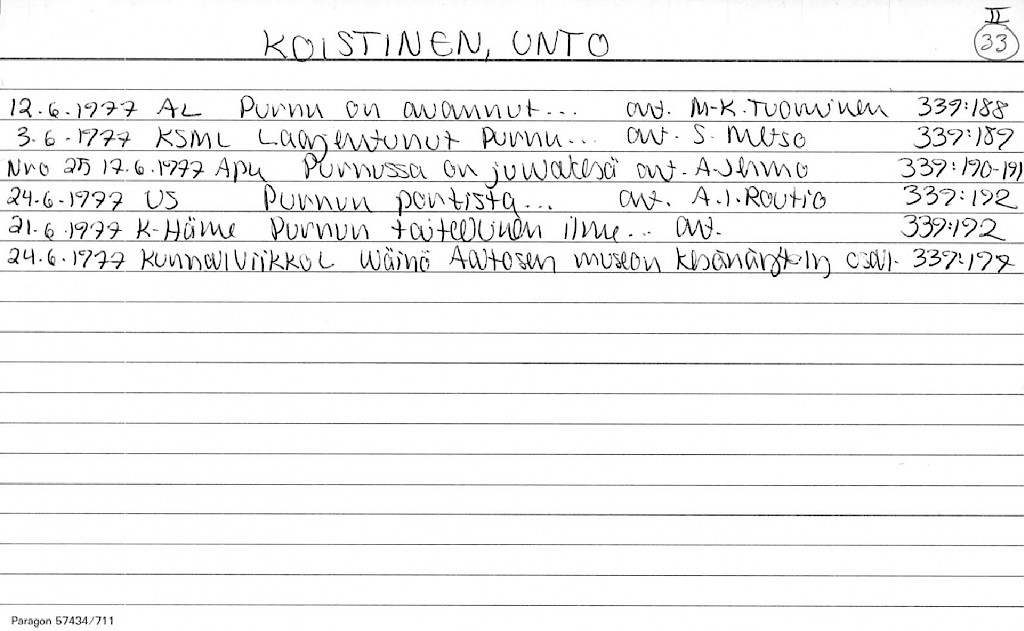 II
KOISTINEN, UNTO 33
12.6.1977 AL Purnu on avannut... art. M-K. Tuominen 339:188
3.6-1977 KSML Laajentunut Purnu... art. S. Metso 339:189
Nro 25 17.6.1977 Apu Purnussa on art. A. 339:190-191
24.6.1977 US Purnun portista... art. A.I. Routio 339:192
21.6.1977 K-Häme Purnun taiteellinen ilme... art. 339:192
24.6.1977 Wäinö Aaltosen museon
Paragon 57434/711